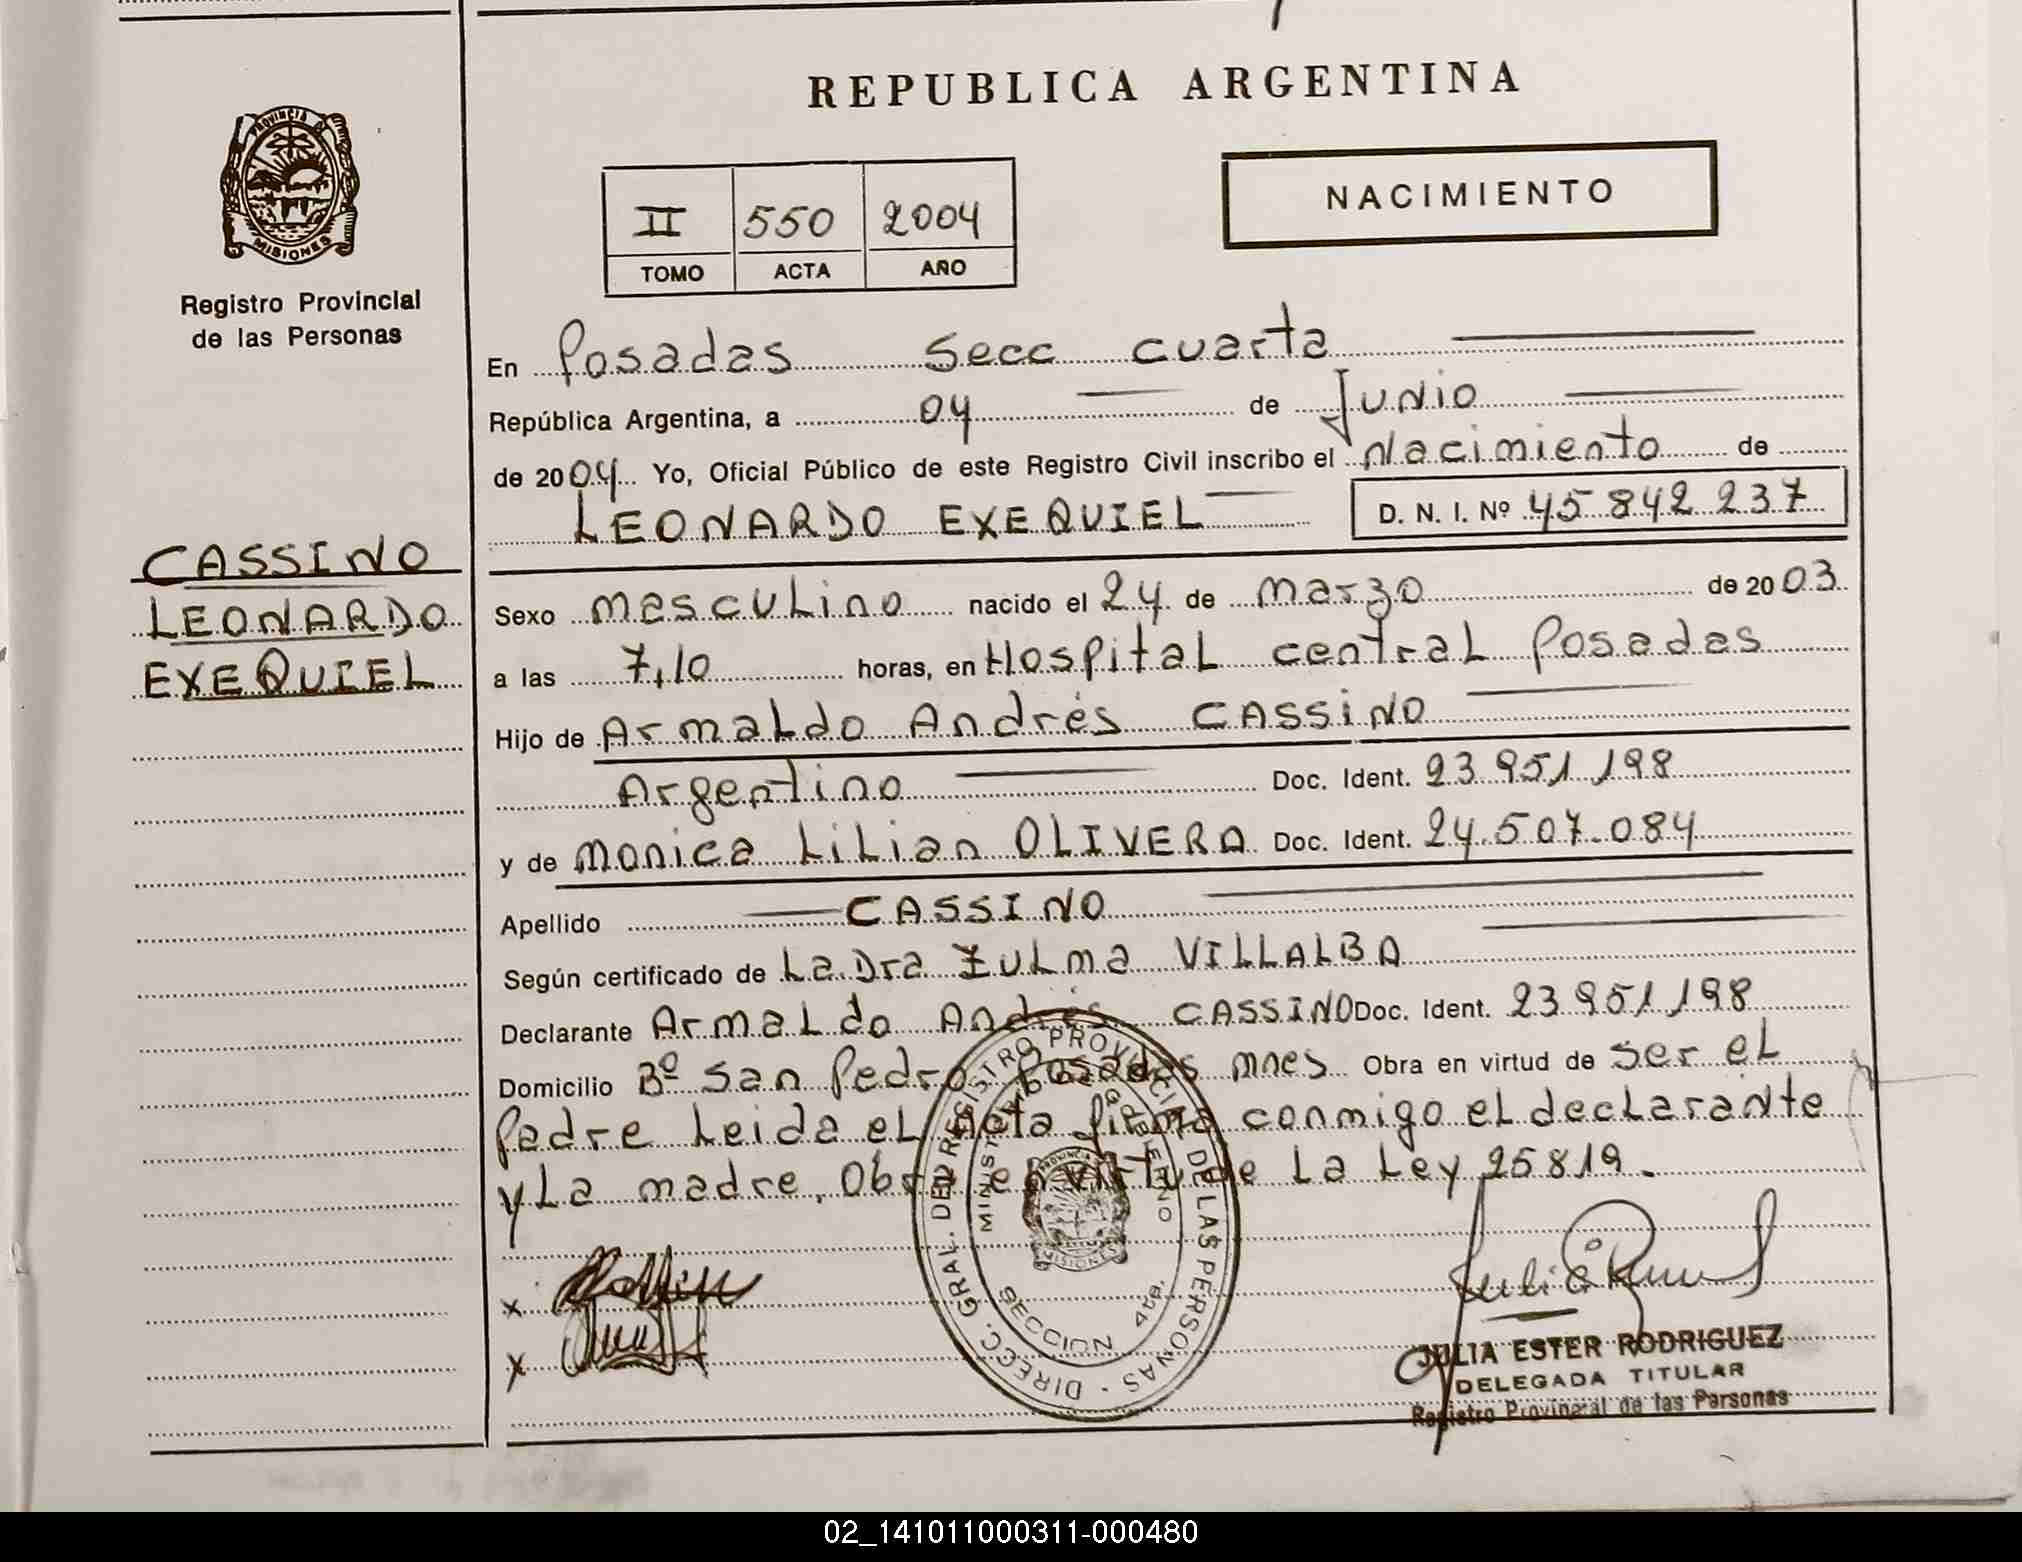 REPUBLICA ARGENTINA
PROVINCIA DE
MISIONES
Registro Provincial
de las Personas
NACIMIENTO
II 550 2004
TOMO ACTA AÑO
En Posadas Secc cuarta
República Argentina, a 04 de Junio
de 2004 Yo, Oficial Público de este Registro Civil inscribo el Nacimiento de
LEONARDO EXEQUIEL D. N. I. Nº 45 842 237
CASSINO
LEONARDO
EXEQUIEL
Sexo masculino nacido el 24 de marzo de 2003
a las 7,10 horas, en Hospital central Posadas
Hijo de Armaldo Andrés CASSINO
Argentino Doc. Ident. 23 951 198
y de Monica Lilian OLIVERA Doc. Ident. 24.507.084
Apellido CASSINO
Según certificado de La Dra Zulma VILLALBA
Declarante Armaldo Andrés CASSINO Doc. Ident. 23 951 198
Domicilio Bº San Pedro Posadas mnes Obra en virtud de ser el
Padre Leida el Acta firma conmigo el declarante
y La madre. Obra en virtud de La Ley 25819.
DIRECC. GRAL. DEL REGISTRO PROVINCIAL DE LAS PERSONAS
SECCION 4ta.
MISIONES
x
x
JULIA ESTER RODRIGUEZ
DELEGADA TITULAR
Registro Provincial de las Personas
02_141011000311-000480